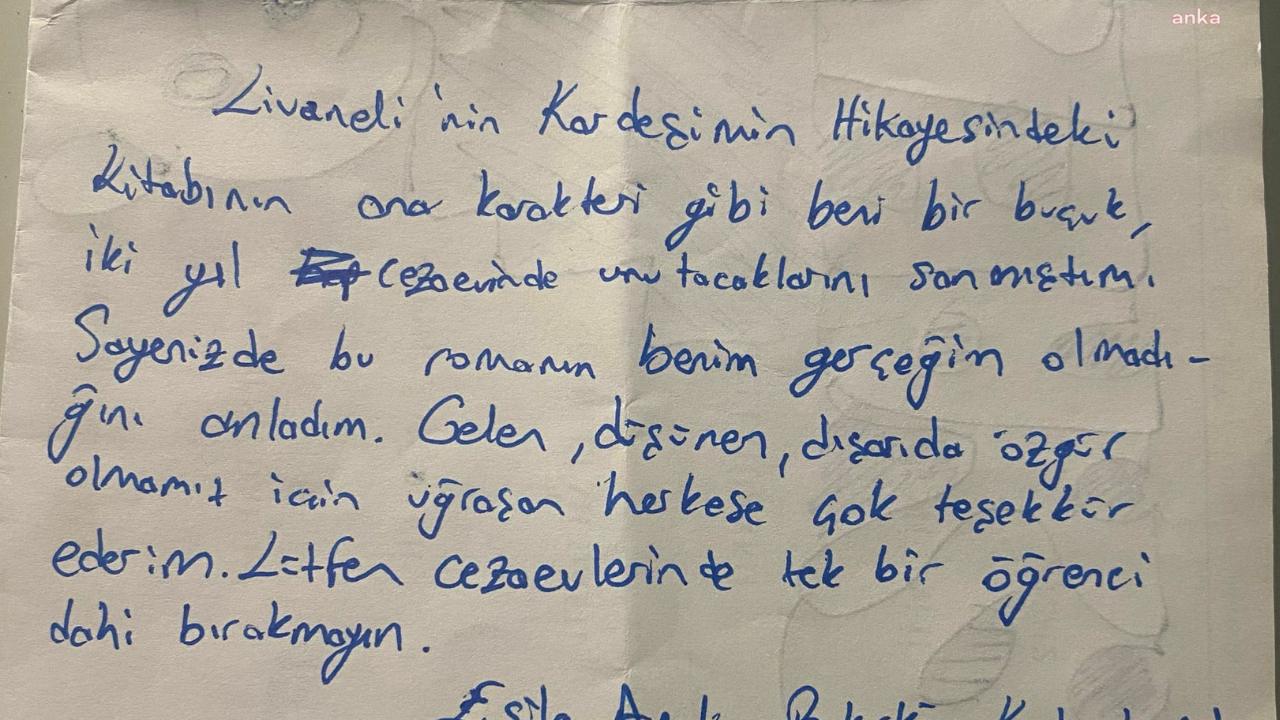 anka
Livaneli'nin Kardeşimin Hikayesindeki
kitabının ana karakteri gibi beni bir buçuk,
iki yıl cezaevinde unutacaklarını sanmıştım.
Sayenizde bu romanın benim gerçeğim olmadı-
ğını anladım. Gelen, düşünen, dışarıda özgür
olmamız için uğraşan herkese çok teşekkür
ederim. Lütfen cezaevlerinde tek bir öğrenci
dahi bırakmayın.
Esila